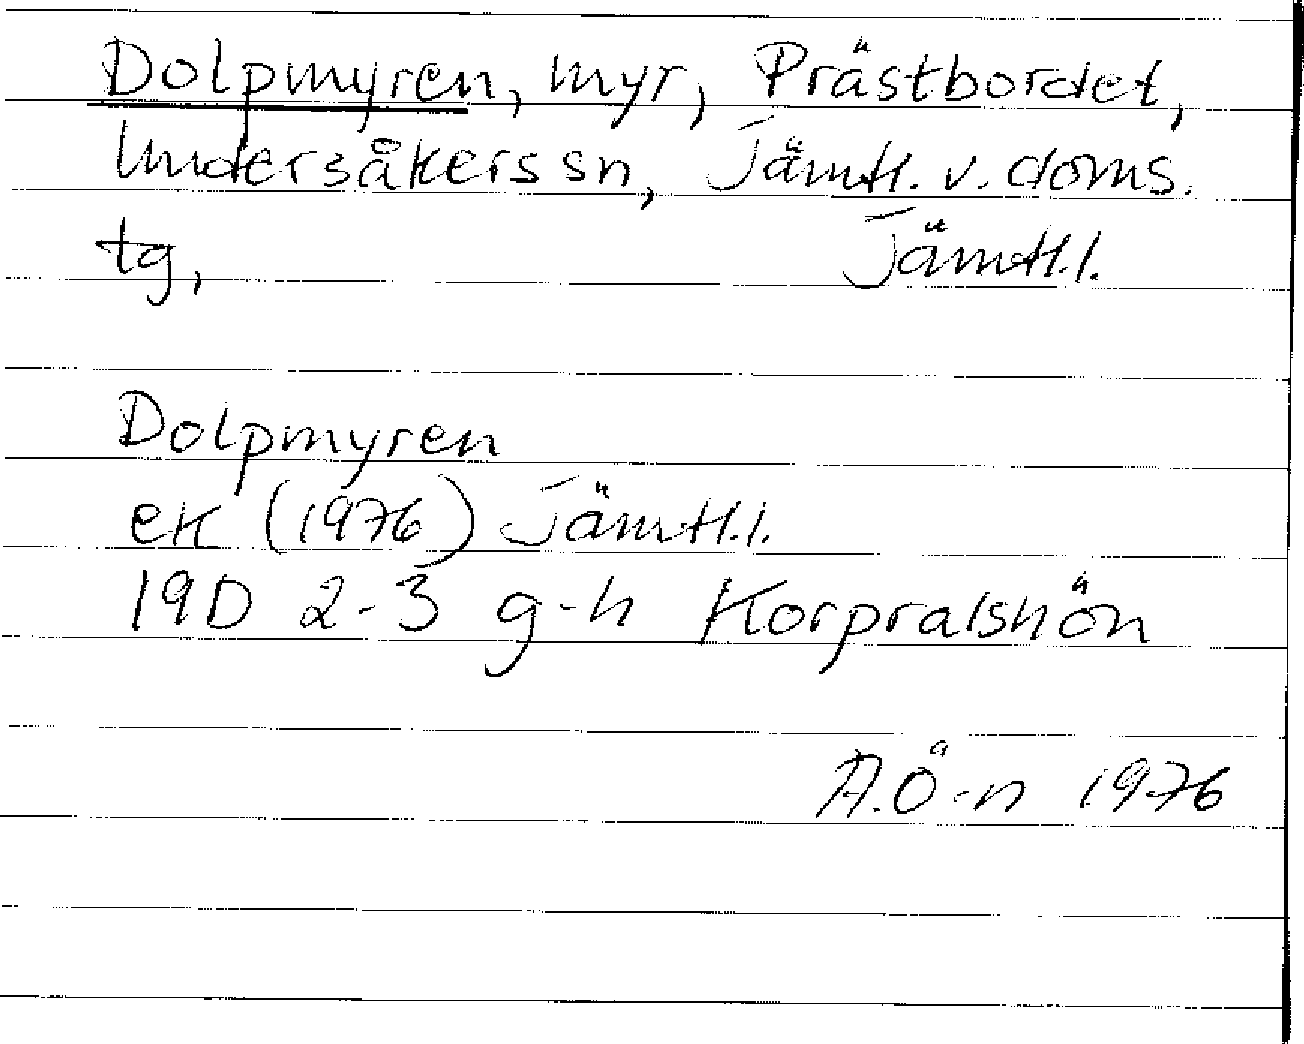 Dolpmyren, myr, Prästbordet,
Undersåkers sn, Jämtl. v. doms.
tg, Jämtl.l.
Dolpmyren
ek (1976) Jämtl.l.
19D 2-3 g-h Korpralshön
A.Ö-n 1976